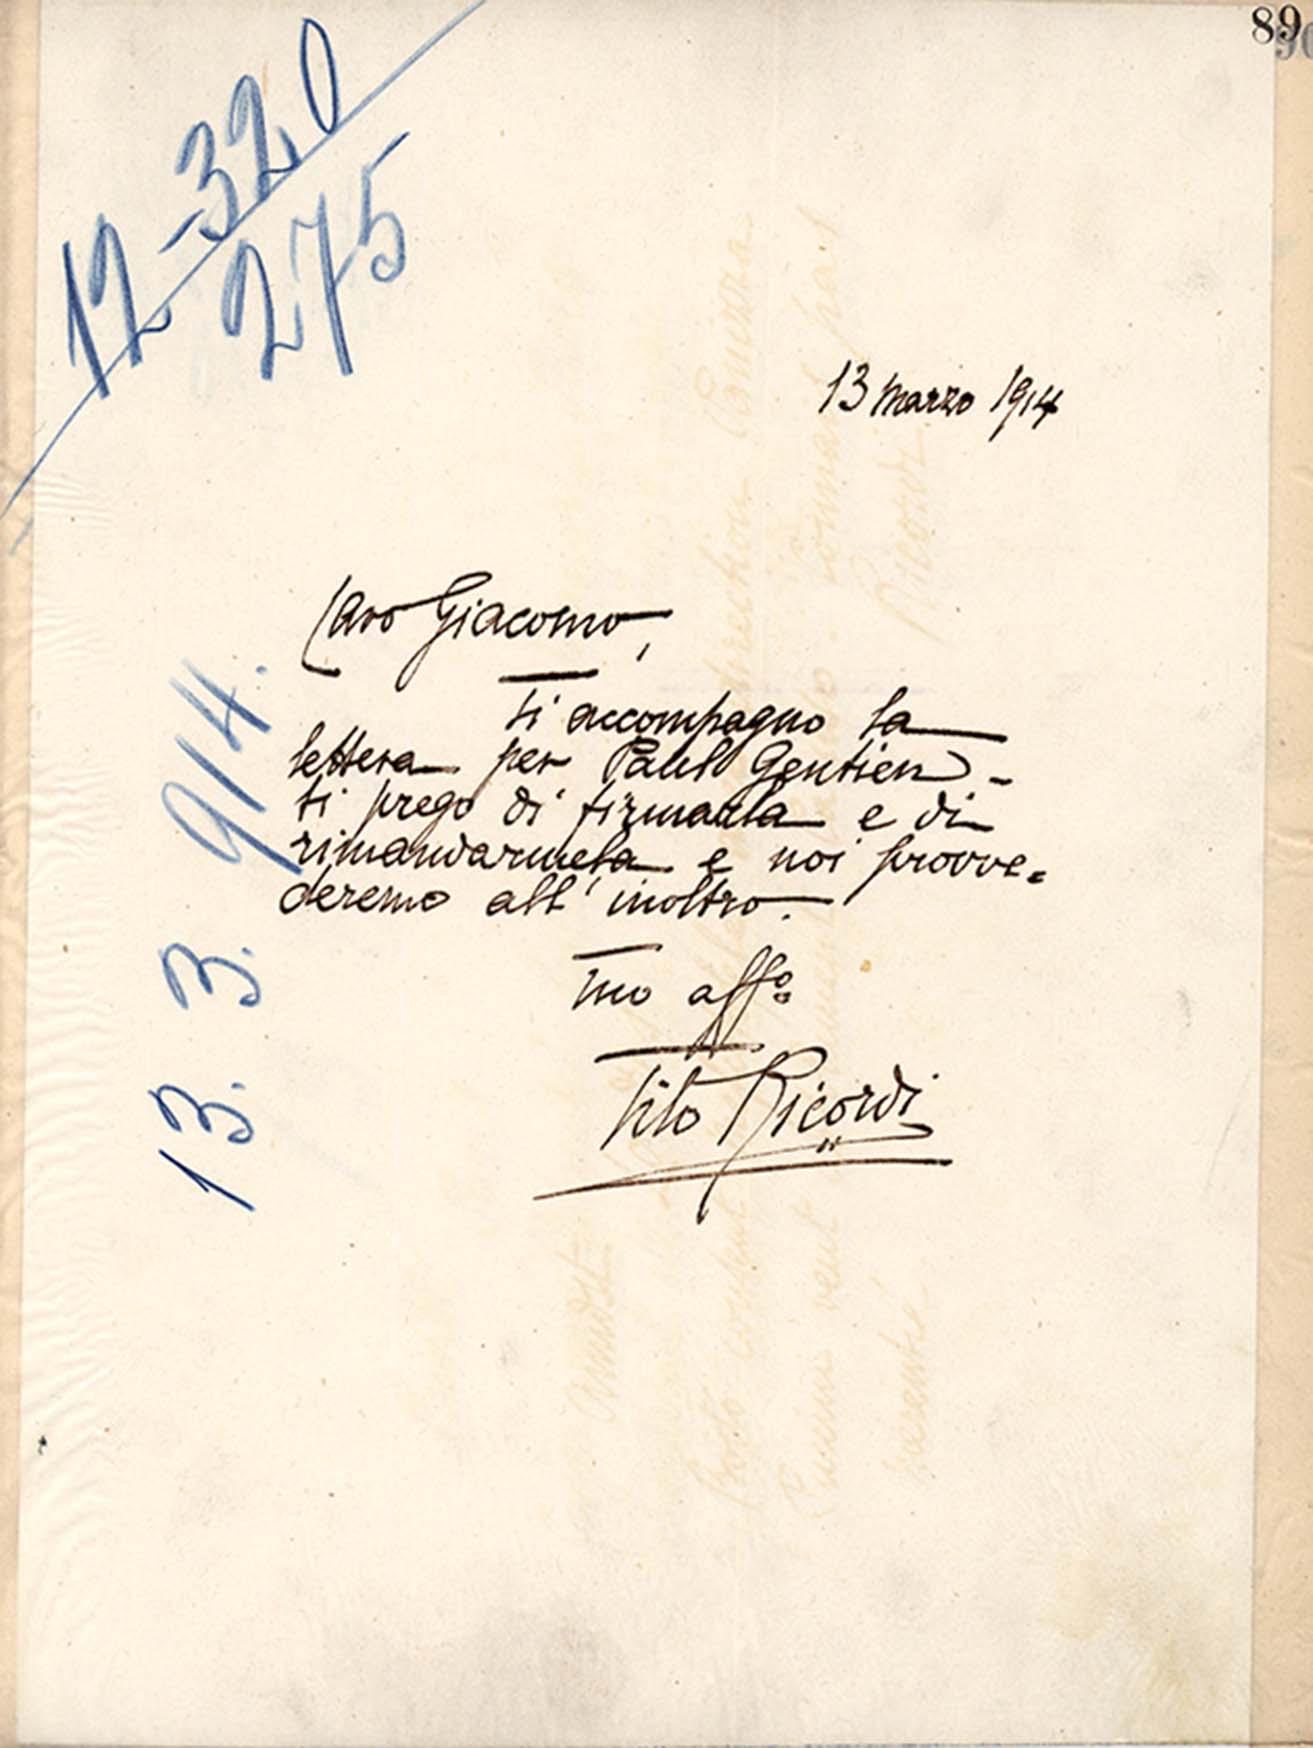 89
90
12-320
275
13 marzo 1914
Caro Giacomo,
ti accompagno la
lettera per Paul Gentien -
ti prego di firmarla e di
rimandarmela e noi provve=
deremo all'inoltro.
Tuo aff.o
Tito Ricordi
13. 3. 914.